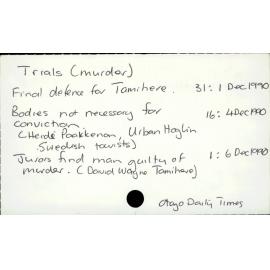 Trials (murder)
Final defence for Tamihere. 31: 1 Dec 1990
Bodies not necessary for 16: 4 Dec 1990
conviction.
(Heidi Paakkonen, Urban Hoglin
Swedish tourists)
Jurors find man guilty of 1: 6 Dec 1990
murder. (David Wayne Tamihere)
Otago Daily Times